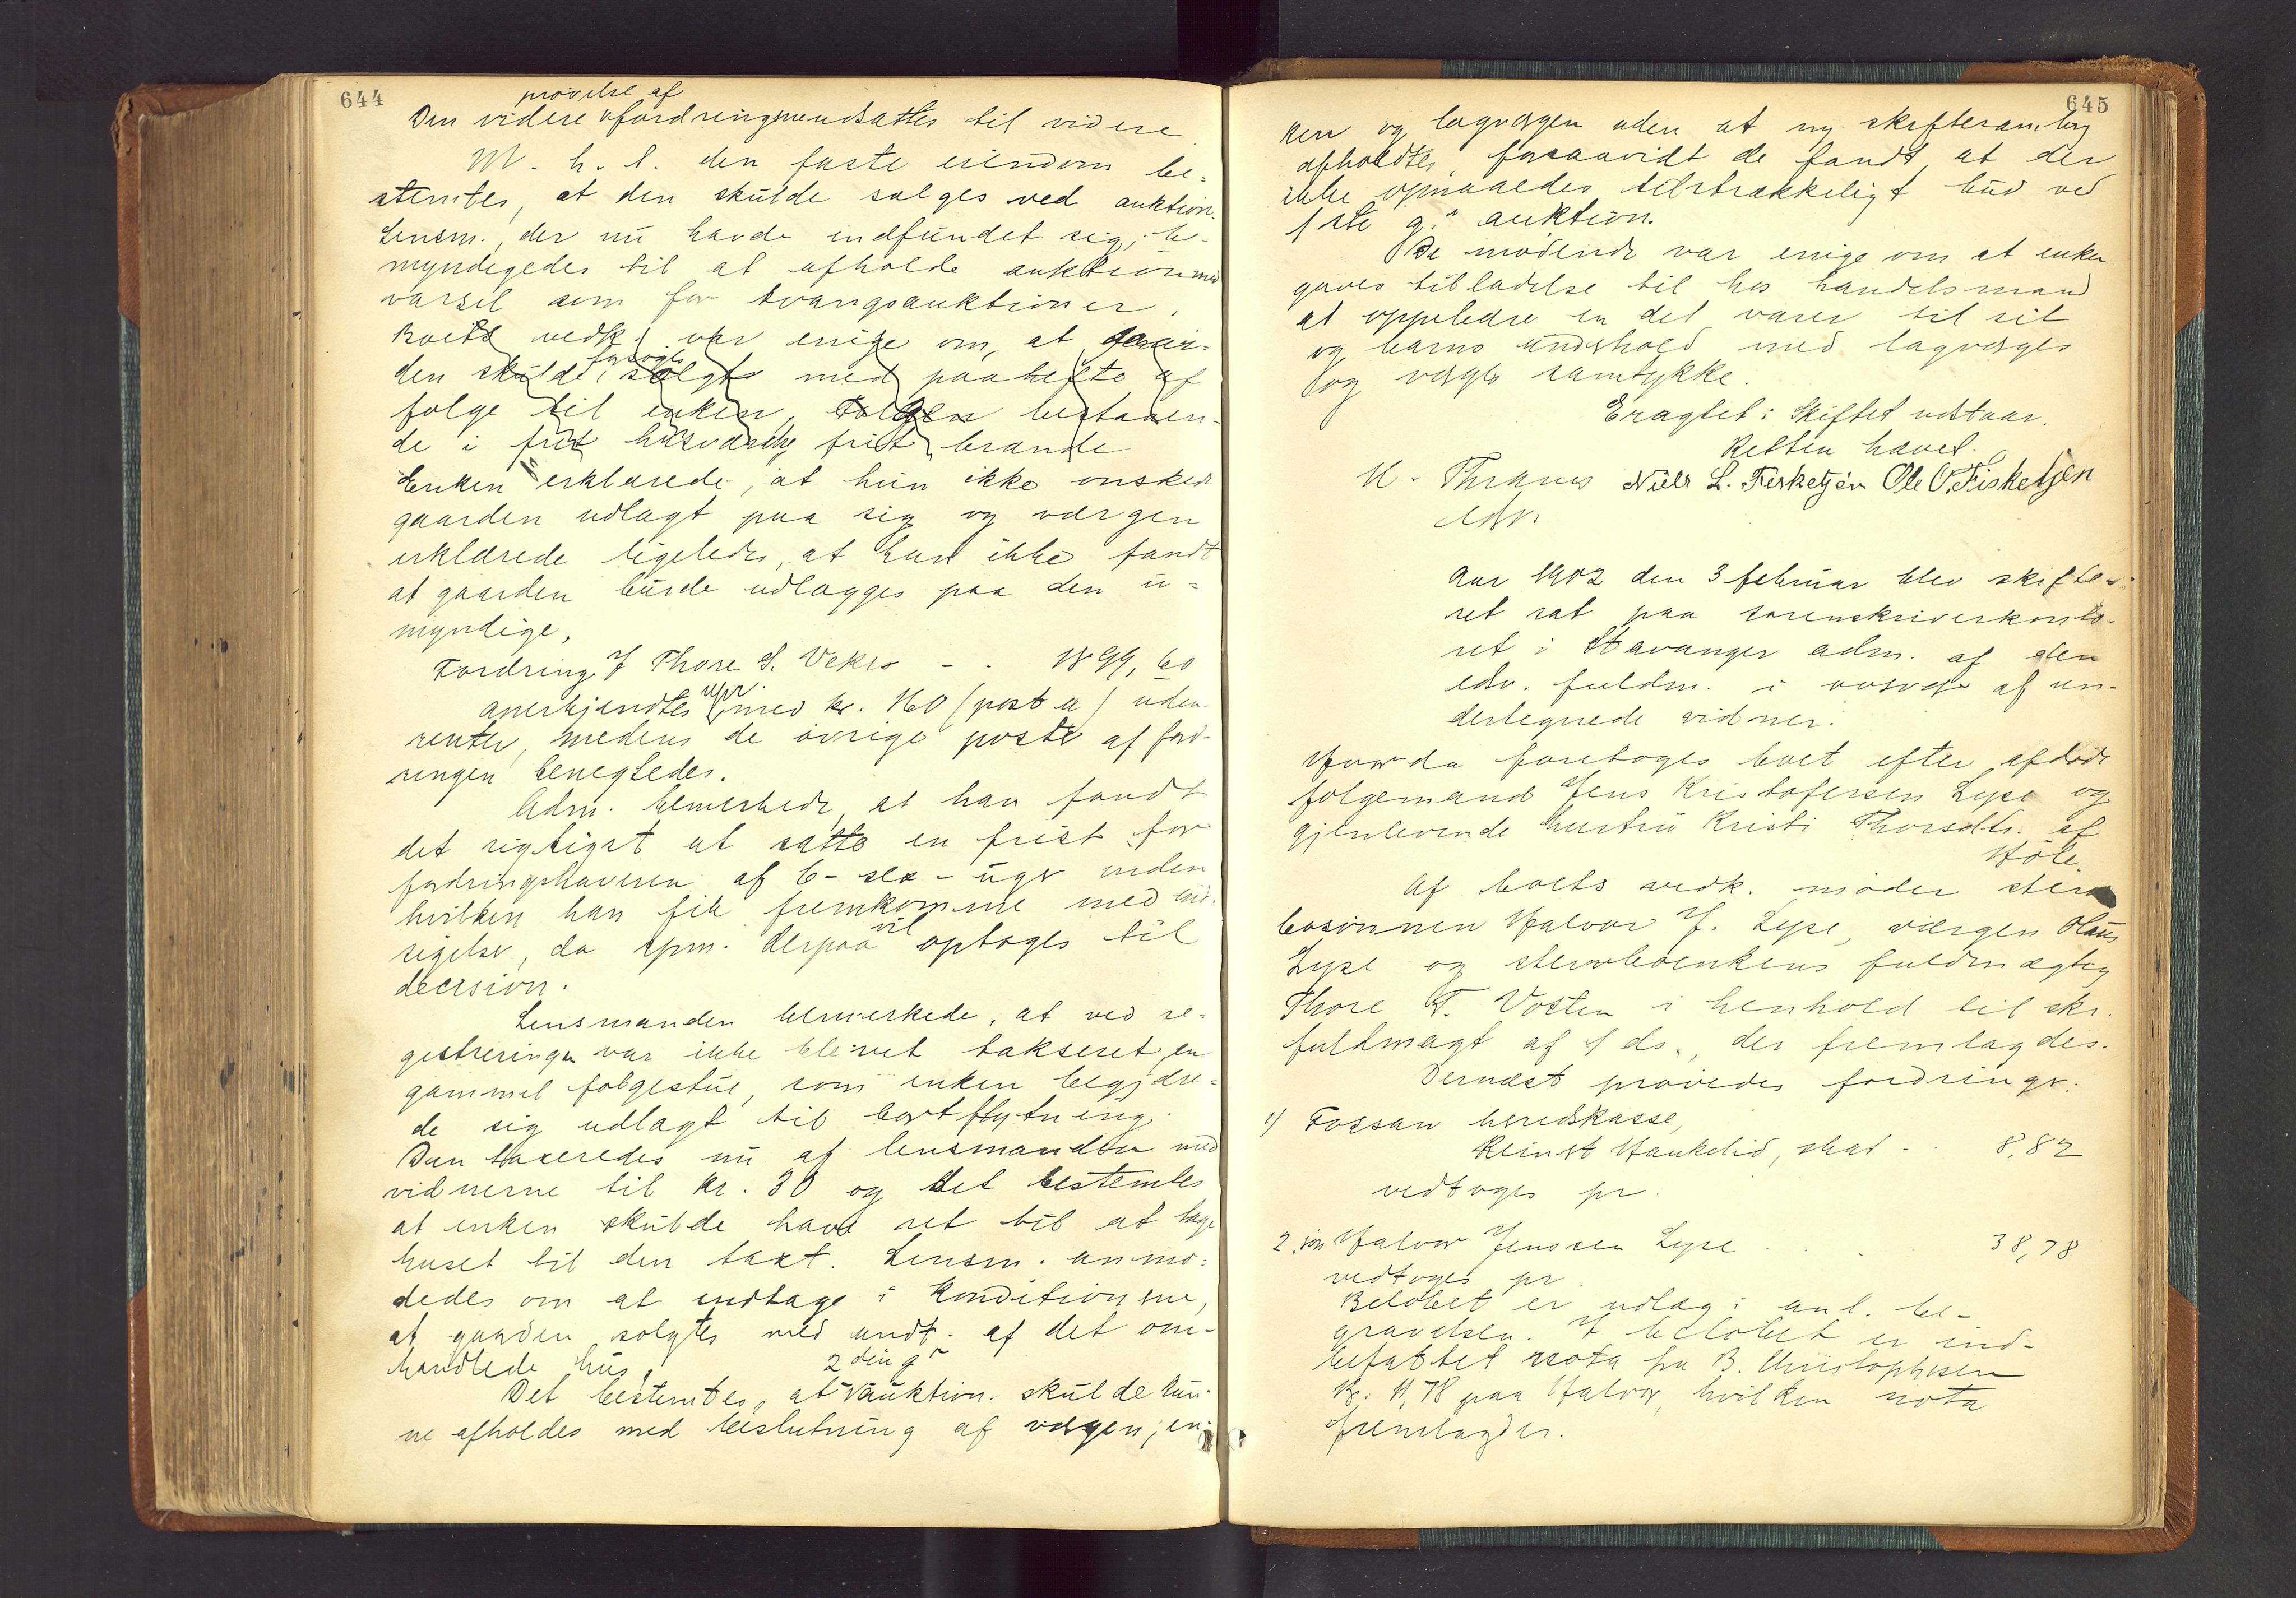 644
prövelse af
Den videre fordringer udsattes til videre
M. h. t. den faste eiendom be=
stemtes, at den skulde sælges ved auktion.
Lensm., der nu havde indfundet sig, be-
myndigedes til at afholde auktion med
varsel som for tvangsauktioner.
Boets vedk. var enige om, at gaar=
den skulde forsøgts solgt med paahefte af
følge til enken, følgen bestaaen-
de i frit husværelse frit brænde
Enken erklærede, at hun ikke ønskede
gaarden udlagt paa sig og værgen
erklærede ligeledes, at han ikke fandt
at gaarden burde udlægges paa den u=
myndige.
Fordring f Thore S. Vekso - - 1899,60
anerkjendtes upr. med kr. 160 (post a) uden
renter, medens de øvrige poster af ford-
ringen benegtedes.
Adm. bemerkede, at han fandt
det rigtigst at sætte en frist for
fordringshaveren af 6 - sex - uger inden
hvilken han fik fremkomme med ind-
sigelse, da spm. derpaa vil optages til
decision.
Lensmanden bemerkede, at ved re=
gistreringen var ikke bleivet takseret en
gammel følgestue, som enken begjære=
de sig udlagt til bortflytning.
Den taxeredes nu af lensmanden med
vidnerne til kr. 30 og det bestemtes
at enken skulde have ret til at tage
huset til den taxt. Lensm. anmo=
dedes om at indtage i konditionerne,
at gaarden solgtes med undt. af det om-
handlede hus.
2den g.
Det bestemtes, at auktion skulde kun-
ne afholdes med beslutning af værgen, en-
645
ken og lagværgen uden at ny skiftesamling
afholdtes, forsaavidt de fandt, at der
ikke opnaaedes tilstrækkeligt bud ved
1ste g. auktion.
De mødende var enige om at enken
gaves tilladelse til hos handelsmand
at oppebære en del varer til sit
og barns underhold med lagværges
og værges samtykke.
Eragtet: Skiftet udstaar.
Retten hævet.
N. Thranes Niels L. Fisketjøn Ole O. Fisketjøn
edsv.
Aar 1902 den 3 februar blev skifte-
ret sat paa sorenskriverkonto-
ret i Stavanger adm. af den
edsv. fuldm. i overvær af un-
dertegnede vidner.
Hvorda foretoges boet efter afdøde
følgemand Jens Kristofersen Lyse og
gjenlevende hustru Kristi Thorsdtr. af
Høle.
Af boets vedk. møder sterv
bosønnen Halvor J. Lyse, værgen Olaus
Lyse og stervboenkens fuldmægtig
Thore T. Vosten i henhold til skr.
fuldmagt af 1 ds., der fremlagdes.
Dernæst prøvedes fordringer.
1) Fossan heredskasse,
Reinert Haukelid, skat - - 8,82
vedtoges pr.
2. søn Halvor Jenssen Lyse . . . 38,78
vedtoges pr.
Beløbet er udlæg i anl. be-
gravelsen. I beløbet er ind-
befattet nota fra B. Christophersen
kr. 11,78 paa Halvor, hvilken nota
fremlagdes.